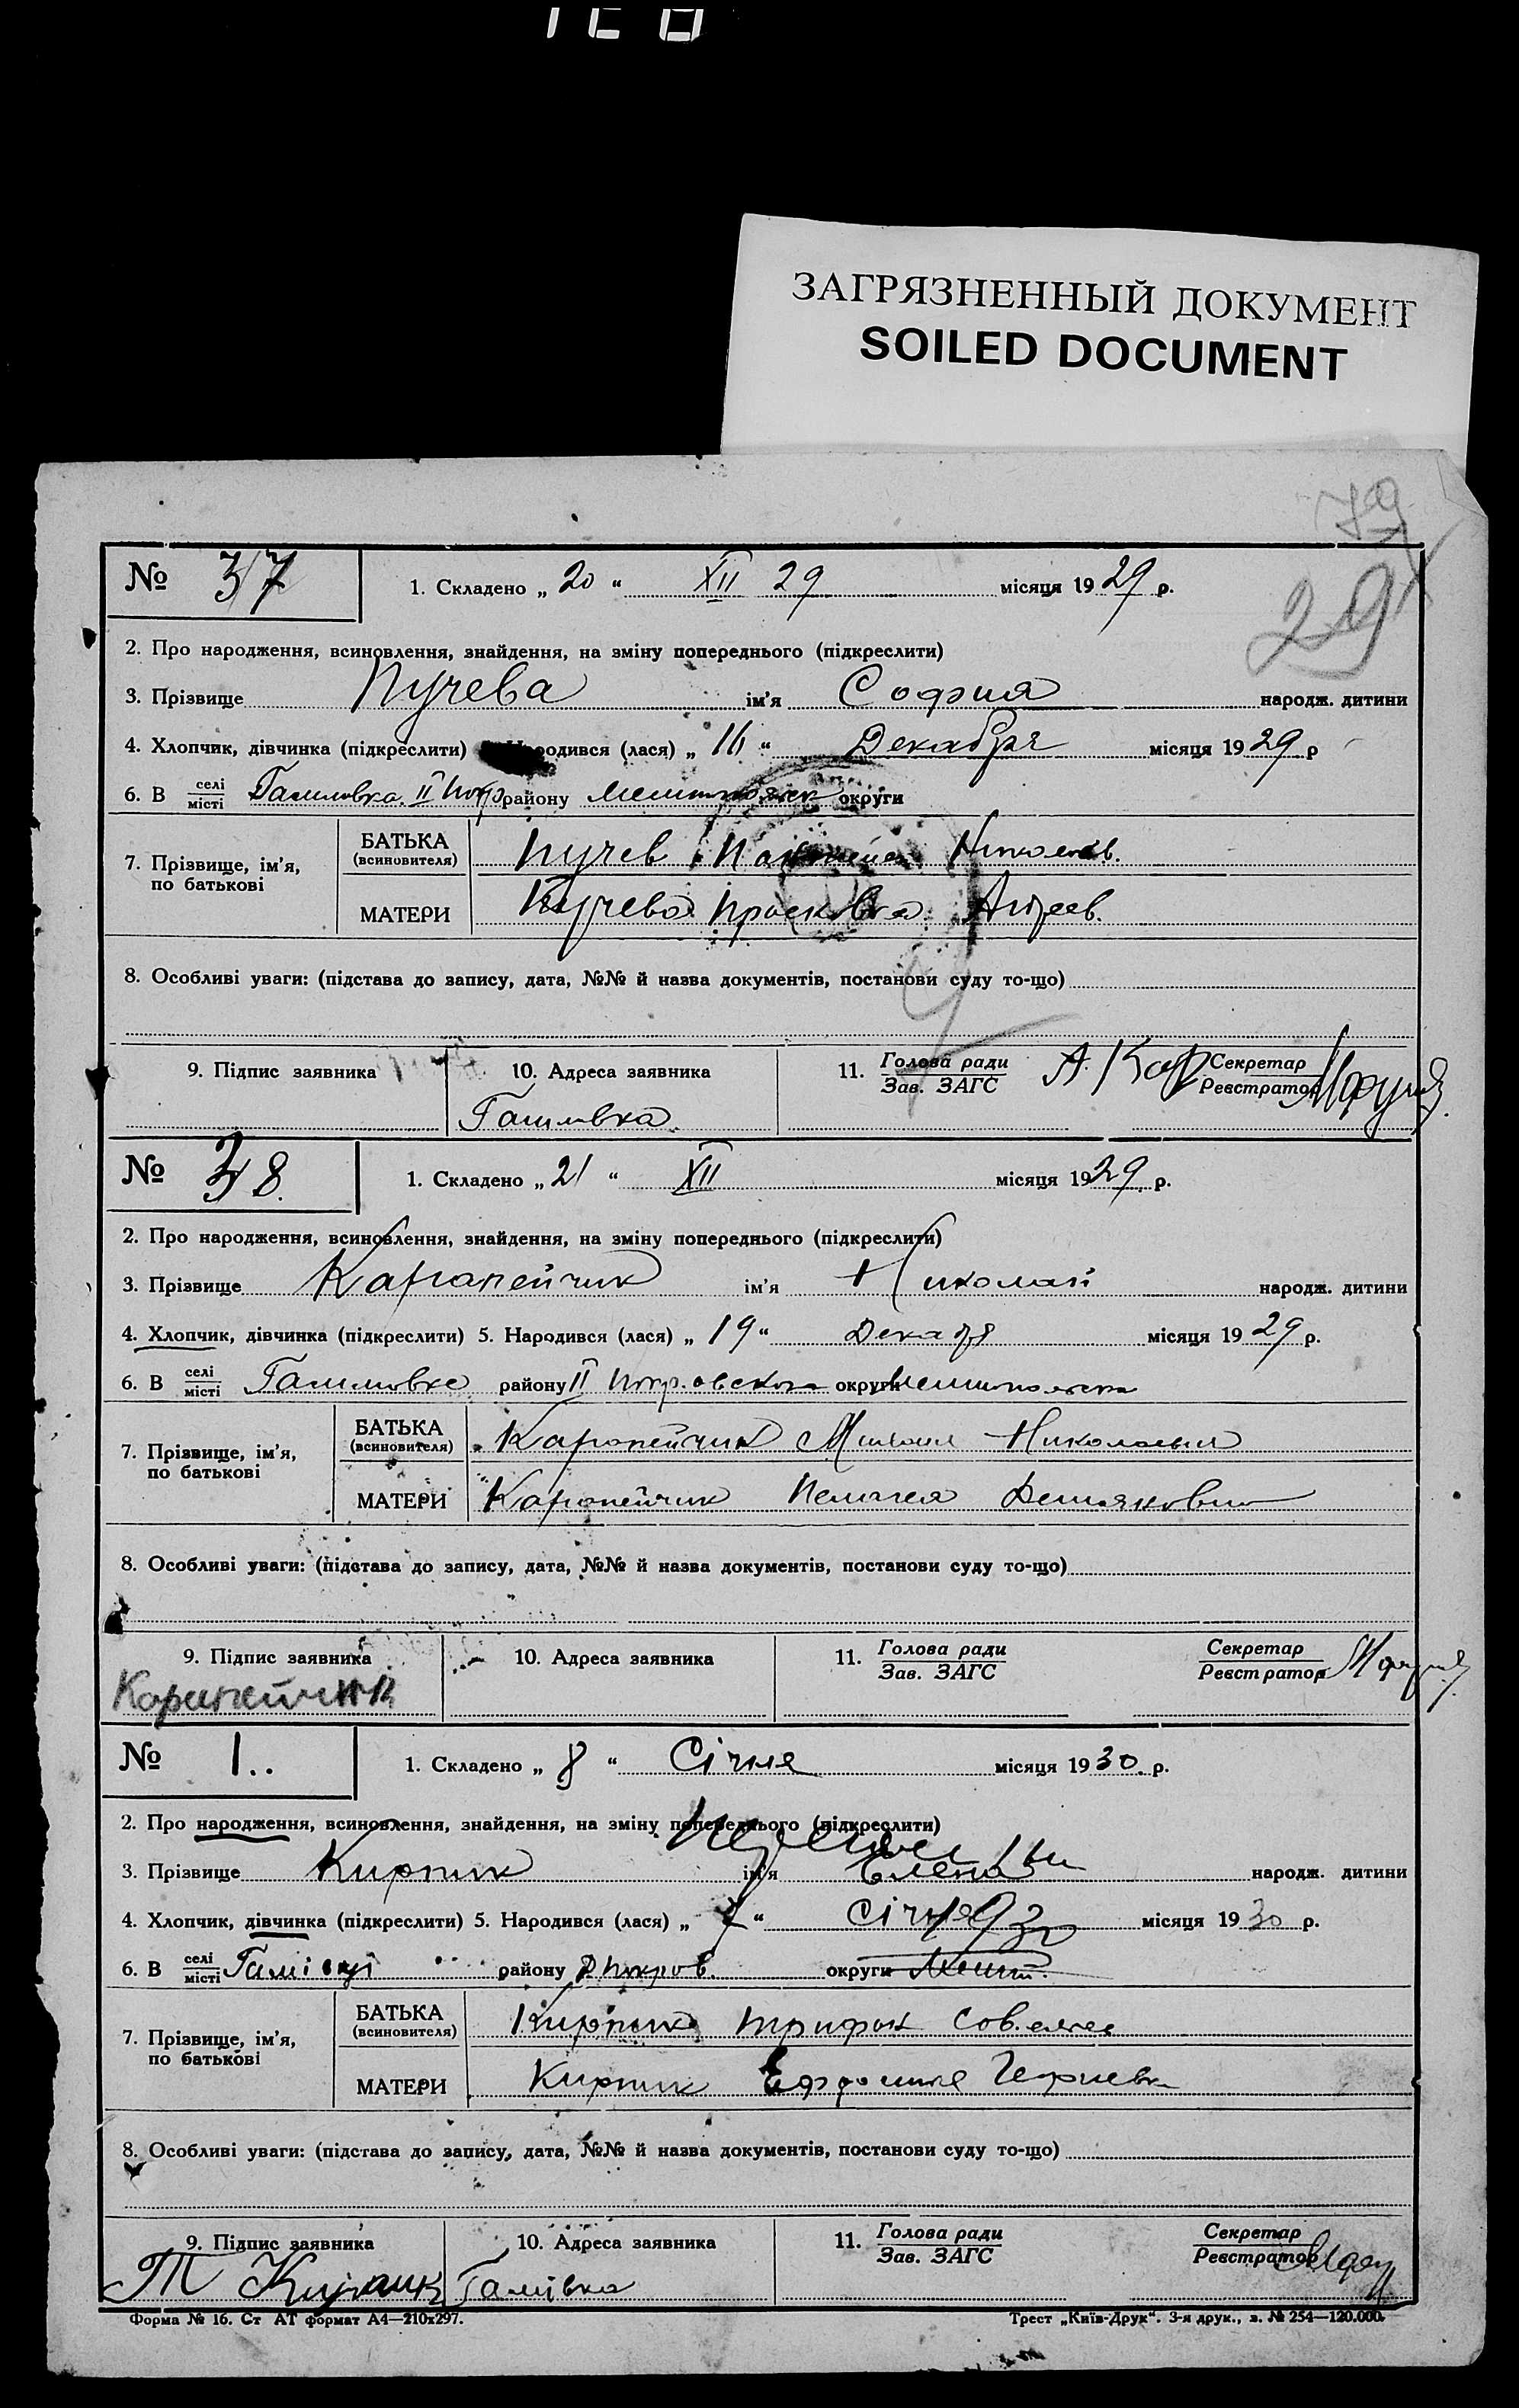 ЗАГРЯЗНЕННЫЙ ДОКУМЕНТ
SOILED DOCUMENT
79
29
№ 37 1. Складено „ 20 “ XII 29 місяця 1929 р.
2. Про народження, всиновлення, знайдення, на зміну попереднього (підкреслити)
3. Прізвище Пучева ім'я София народж. дитини
4. Хлопчик, дівчинка (підкреслити) Народився (лася) „ 16 “ Декабря місяця 1929 р
6. В селі/місті II Покр району округи
7. Прізвище, ім'я, по батькові
БАТЬКА (всиновителя) Пучев Николаев.
МАТЕРИ Пучева Прасковья Андреев.
8. Особливі уваги: (підстава до запису, дата, №№ й назва документів, постанови суду то-що)
9. Підпис заявника 10. Адреса заявника 11. Голова ради/Зав. ЗАГС А. Кар Секретар/Реєстратор
№ 38. 1. Складено „ 21 “ XII місяця 1929 р.
2. Про народження, всиновлення, знайдення, на зміну попереднього (підкреслити)
3. Прізвище Карапейчик ім'я Николай народж. дитини
4. Хлопчик, дівчинка (підкреслити) 5. Народився (лася) „ 19 “ Декабря місяця 1929 р.
6. В селі/місті району II Покровского округи
7. Прізвище, ім'я, по батькові
БАТЬКА (всиновителя) Карапейчик Михаил Николаевич
МАТЕРИ Карапейчик Пелагея
8. Особливі уваги: (підстава до запису, дата, №№ й назва документів, постанови суду то-що)
9. Підпис заявника 10. Адреса заявника 11. Голова ради/Зав. ЗАГС Секретар/Реєстратор
Карапейчик
№ 1.. 1. Складено „ 8 “ Січня місяця 1930. р.
2. Про народження, всиновлення, знайдення, на зміну попереднього (підкреслити)
3. Прізвище Кирпик ім'я Елена народж. дитини
4. Хлопчик, дівчинка (підкреслити) 5. Народився (лася) „ 7 “ Січня місяця 1930 р.
6. В селі/місті району округи
7. Прізвище, ім'я, по батькові
БАТЬКА (всиновителя) Кирпик Трифон
МАТЕРИ Кирпик
8. Особливі уваги: (підстава до запису, дата, №№ й назва документів, постанови суду то-що)
9. Підпис заявника 10. Адреса заявника 11. Голова ради/Зав. ЗАГС Секретар/Реєстратор
Т Кирпик
Форма № 16. Ст АТ формат А4—210х297. Трест „Київ-Друк“. 3-я друк., з. № 254—120.000.